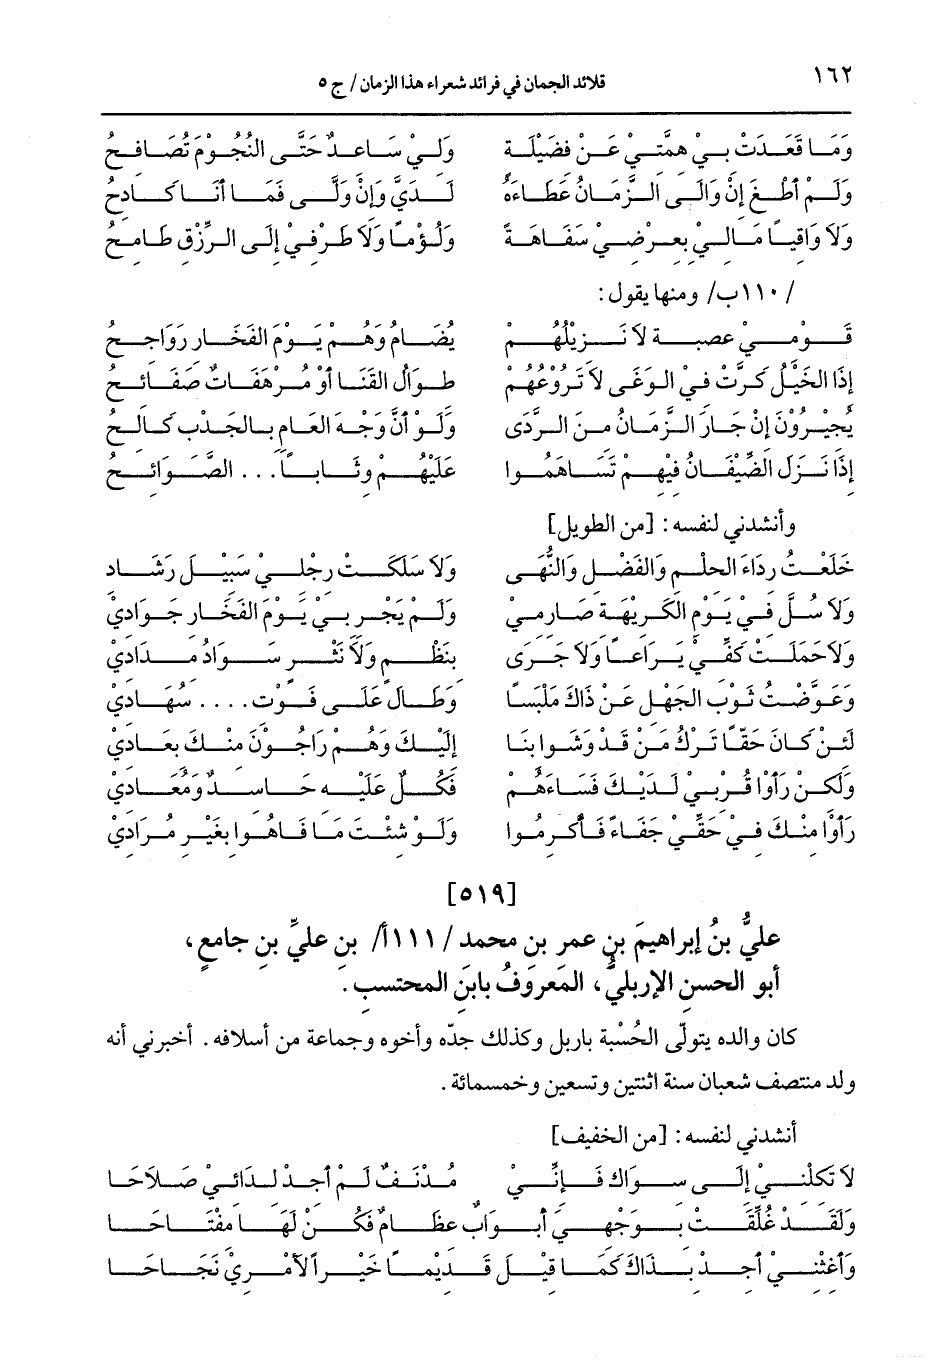 ١٦٢
قلائد الجمان في فرائد شعراء هذا الزمان / ج ٥
وَمَا قَعَدَتْ بِيْ هِمَّتِي عَنْ فَضِيْلَةٍ وَلِيْ سَاعِدٌ حَتَّى النُّجُوْمَ تُصَافِحُ
وَلَمْ أَطْغَ إِنْ وَالَى الزَّمَانُ عَطَاءَهُ لَدَيَّ وَإِنْ وَلَّى فَمَا أَنَا كَادِحُ
وَلاَ وَاقِيًا مَالِيْ بِعِرْضِيْ سَفَاهَةً وَلُؤْمًا وَلاَ طَرْفِيْ إِلَى الرِّزْقِ طَامِحُ
/ ١١٠ب/ ومنها يقول:
قَوْمِيْ عصبة لاَ نَزِيْلُهُمْ يُضَامُ وَهُمْ يَوْمَ الفَخَارِ رَوَاجِحُ
إِذَا الخَيْلُ كَرَّتْ فِيْ الوَغَى لاَ تَرُوْعُهُمْ طِوَالُ القَنَا أَوْ مُرْهَفَاتٌ صَفَائِحُ
يُجِيْرُوْنَ إِنْ جَارَ الزَّمَانُ مِنَ الرَّدَى وَلَوْ أَنَّ وَجْهَ العَامِ بِالجَدْبِ كَالِحُ
إِذَا نَزَلَ الضِّيْفَانُ فِيْهِمْ تَسَاهَمُوا عَلَيْهُمْ وِثَابًا . . . الصَّوَائِحُ
وأنشدني لنفسه: [من الطويل]
خَلَعْتُ رِدَاءَ الحِلْمِ وَالفَضْلِ وَالنُّهَى وَلاَ سَلَكَتْ رِجْلِيْ سَبِيْلَ رَشَادِ
وَلاَ سُلَّ فِيْ يَوْمِ الكَرِيْهَةِ صَارِمِيْ وَلَمْ يَجْرِ بِيْ يَوْمَ الفَخَارِ جَوَادِيْ
وَلاَ حَمَلَتْ كَفِّيْ يَرَاعًا وَلاَ جَرَى بِنَظْمٍ وَلاَ نَثْرٍ سَوَادُ مِدَادِيْ
وَعَوَّضْتُ ثَوْبَ الجَهْلِ عَنْ ذَاكَ مَلْبَسًا وَطَالَ عَلَى فَوْتِ . . . . سُهَادِيْ
لَئِنْ كَانَ حَقًّا تَرْكُ مَنْ قَدْ وَشَوا بِنَا إِلَيْكَ وَهُمْ رَاجُوْنَ مِنْكَ بِعَادِيْ
وَلَكِنْ رَأَوْا قُرْبِيْ لَدَيْكَ فَسَاءَهُمْ فَكُلٌّ عَلَيْهِ حَاسِدٌ وَمُعَادِيْ
رَأَوْا مِنْكَ فِيْ حَقِّيْ جَفَاءً فَأَكرمُوا وَلَوْ شِئْتَ مَا فَاهُوا بِغَيْرِ مُرَادِيْ
[٥١٩]
عليُّ بنُ إبراهيمَ بنِ عمر بن محمد / ١١١أ/ بنِ عليِّ بنِ جامعٍ،
أبو الحسنِ الإربليُّ، المَعروفُ بابنِ المحتسبِ.
كان والده يتولّى الحُسْبة باربل وكذلك جدّه وأخوه وجماعة من أسلافه. أخبرني أنه
ولد منتصف شعبان سنة اثنتين وتسعين وخمسمائة.
أنشدني لنفسه: [من الخفيف]
لاَ تَكِلْنِيْ إِلَى سِوَاكَ فَإِنِّيْ مُدْنَفٌ لَمْ أَجِدْ لِدَائِيْ صَلاَحَا
وَلَقَدْ غُلِّقَتْ بِوَجْهِيَ أَبْوَابٌ عِظَامٌ فَكُنْ لَهَا مِفْتَاحَا
وَأَغِثْنِيْ أَجِدْ بِذَاكَ كَمَا قِيْلَ قَدِيْمًا خَيْرًا لأَمْرِيْ نَجَاحَا